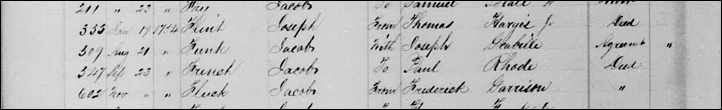 211 " 23 " Fry Jacob To Samuel
335 Jan 19 1754 Flint Joseph From Thomas Hargis Jr Deed
509 Aug 21 " Funk Jacob With Joseph Grabill Agreemt "
547 Sep 23 " French Jacob To Paul Rhode Deed
602 Nov " " Fluck Jacob From Frederick Garrison "